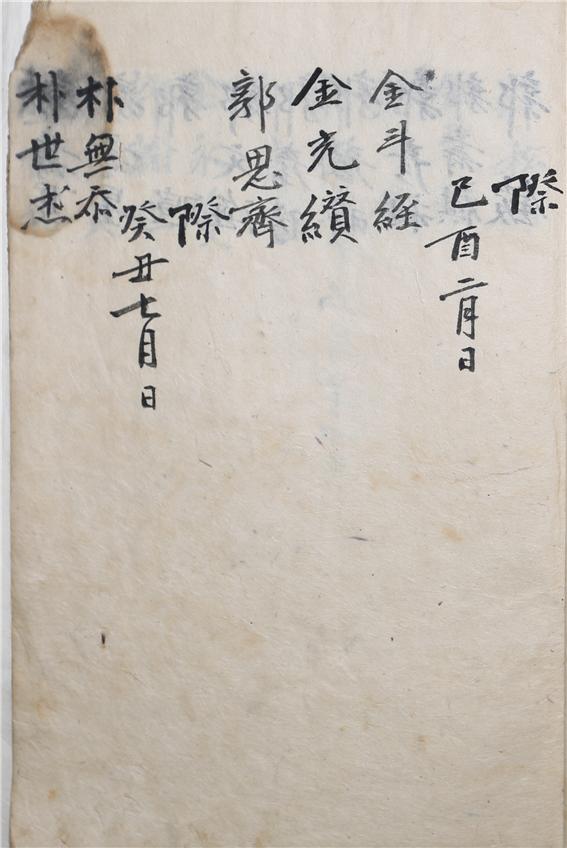 際
己酉二月日
金斗經
金克纘
郭思齊
際
癸丑七月日
朴無忝
朴世杰